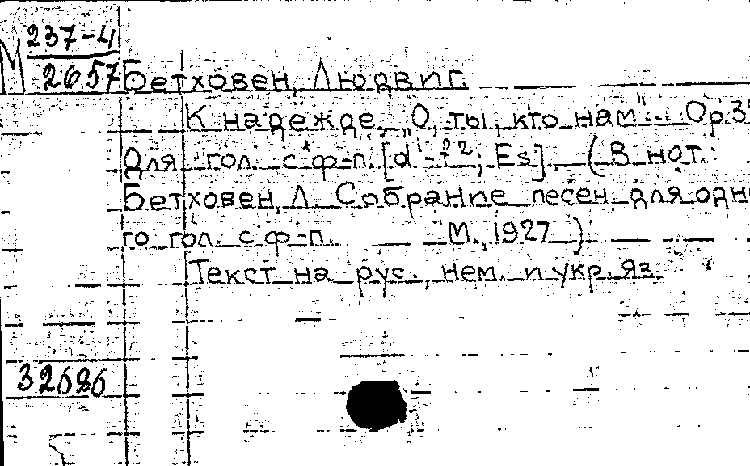 М 237-4
2657
Бетховен, Людвиг.
К надежде. „О, ты, кто нам"... Op.3
Для гол. с ф-п. [d'-f²; Es]. (В нот.:
Бетховен, Л. Собрание песен для одно
го гол. с ф-п. М., 1927.)
Текст на рус., нем. и укр. яз.
32686